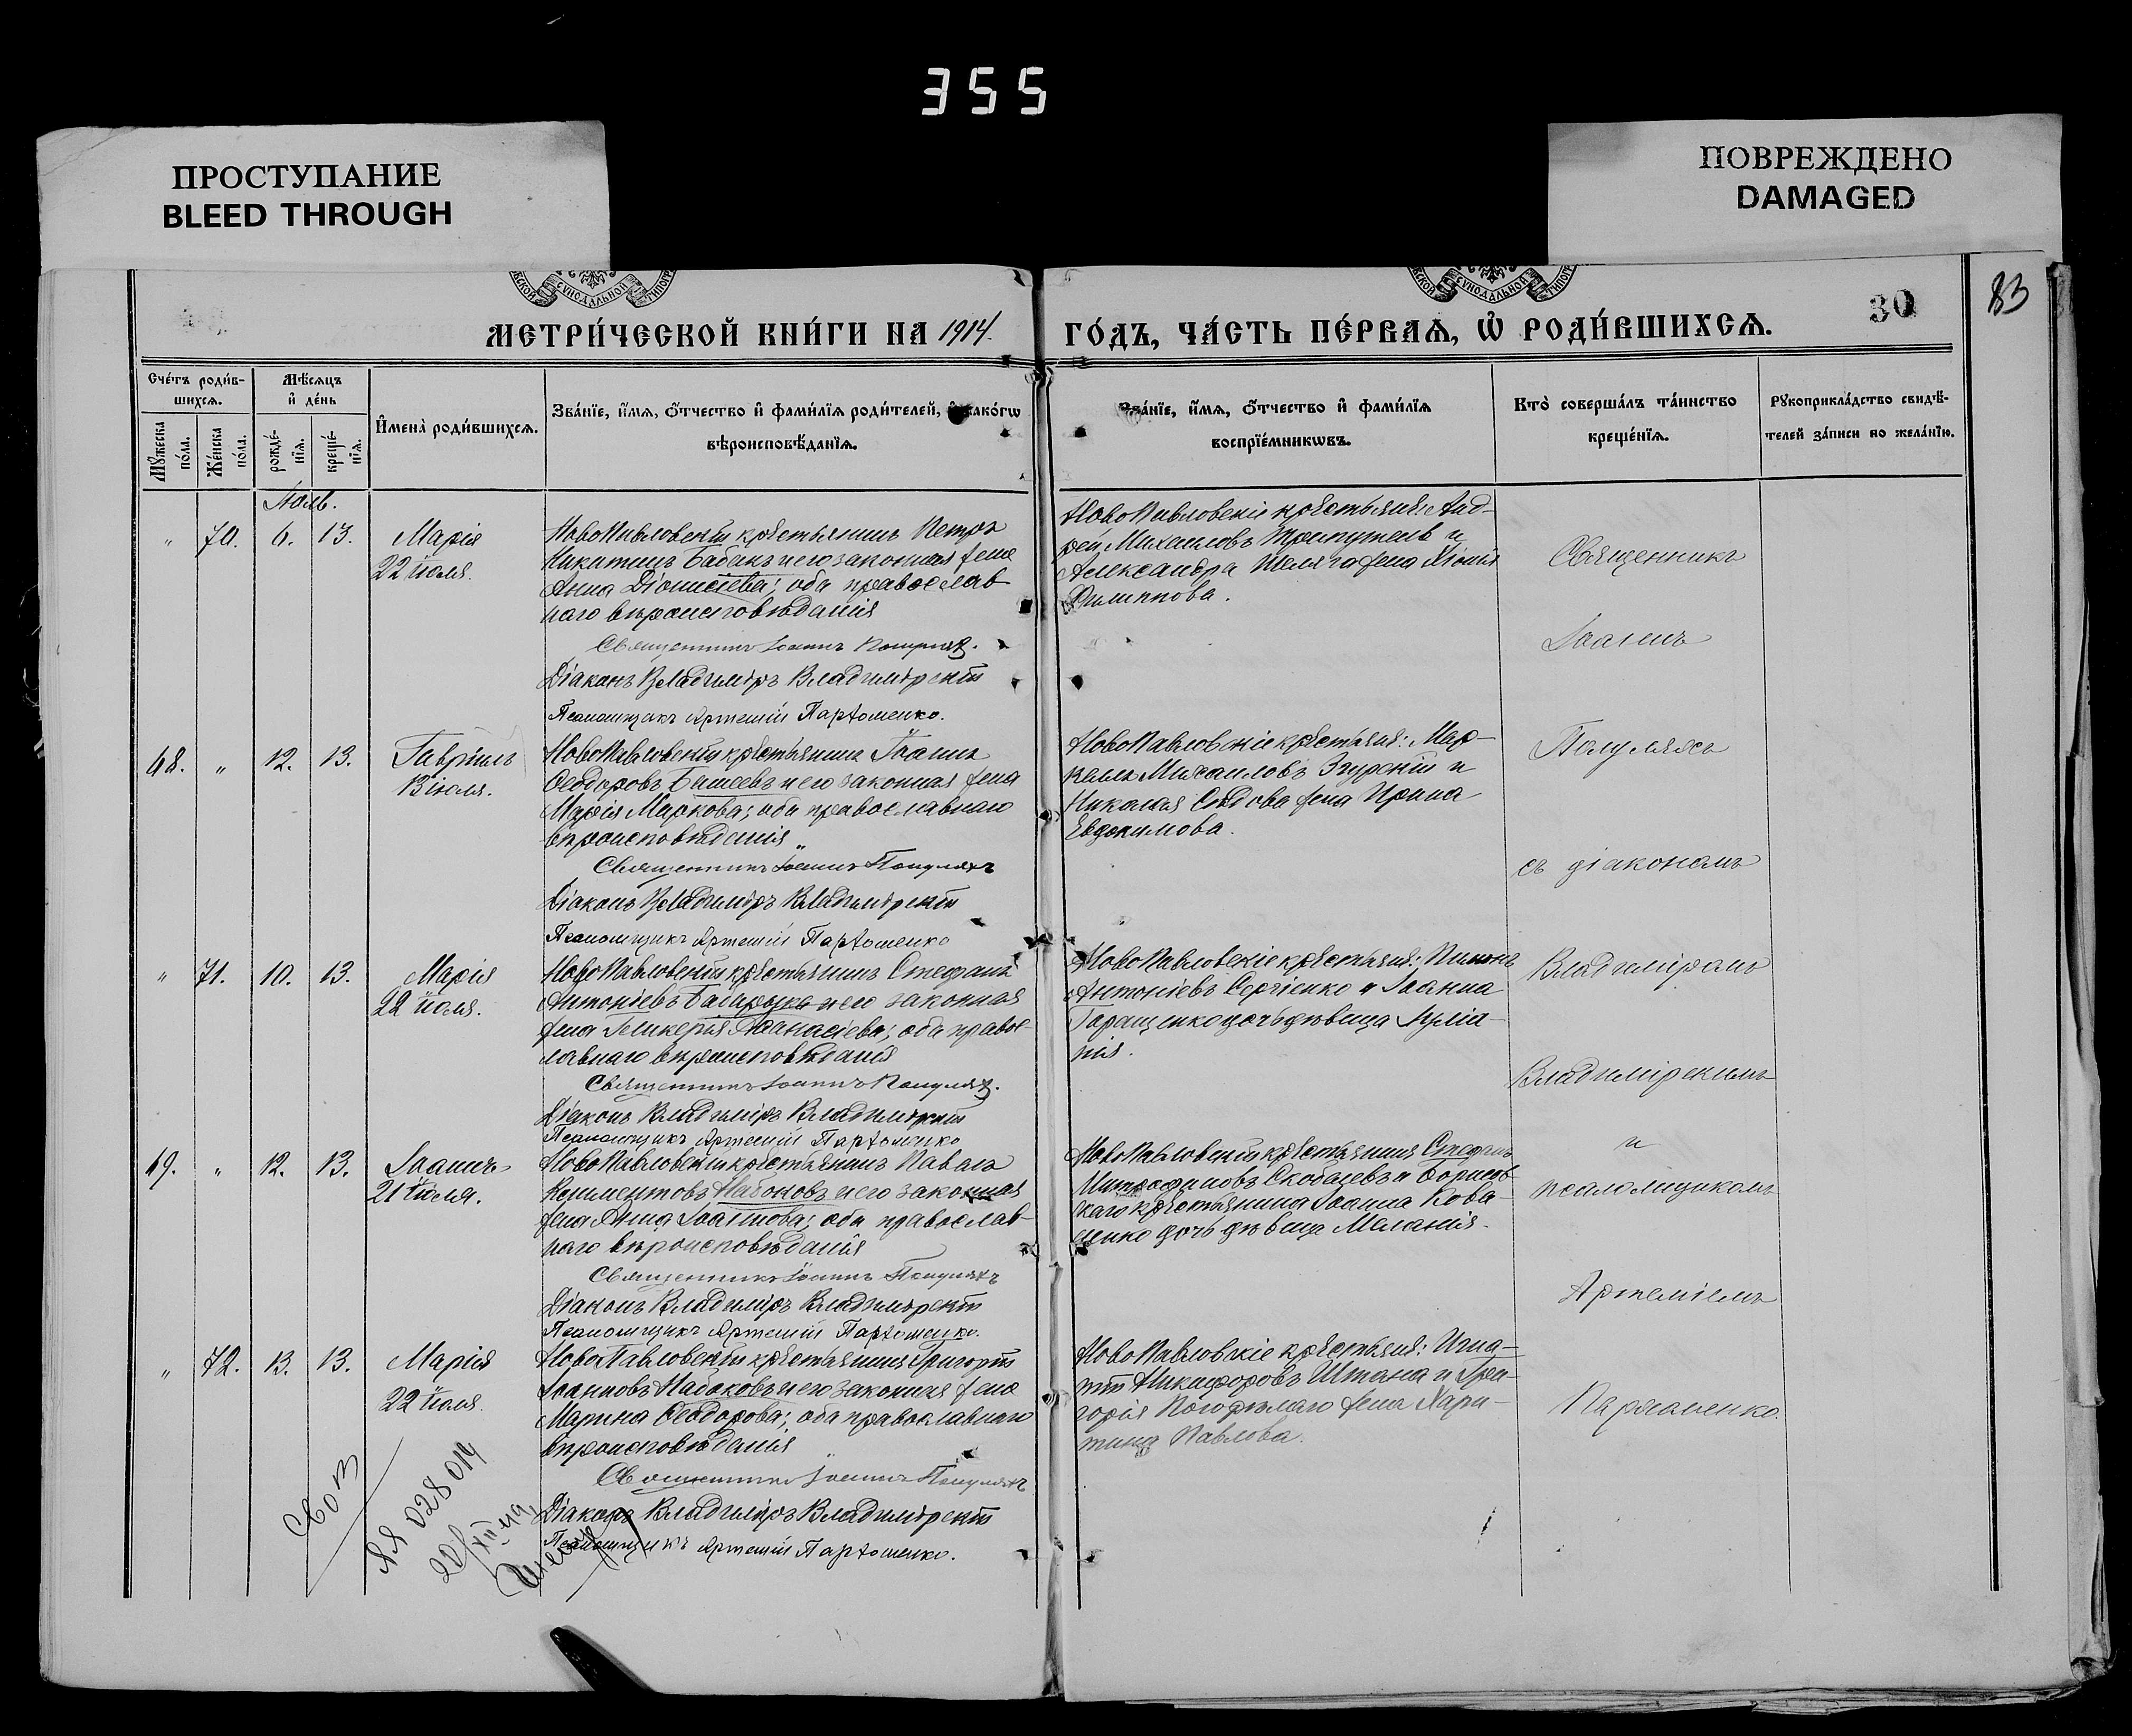 355
ПРОСТУПАНИЕ
BLEED THROUGH
ПОВРЕЖДЕНО
DAMAGED
МЕТРИ́ЧЕСКОЙ КНИ́ГИ НА 1914.
ГО́ДЪ, ЧА́СТЬ ПЕ́РВАѦ, Ѡ҆ РОДИ́ВШИХСѦ.
30
83
Сче́тъ роди́в-
шихсѧ.
Мꙋ́жеска по́ла.
Же́нска по́ла.
Мѣ́сѧцъ
и҆ де́нь
рожде́-
нїѧ.
креще́-
нїѧ.
И҆мена̀ роди́вшихсѧ.
Зва́нїе, и҆́мѧ, ѻ҆́тчество и҆ фами́лїѧ роди́телей, и҆ како́гѡ
вѣроисповѣ́данїѧ.
Зва́нїе, и҆́мѧ, ѻ҆́тчество и҆ фами́лїѧ
воспрїе́мникѡвъ.
Кто̀ соверша́лъ та́инство
креще́нїѧ.
Рꙋкоприкла́дство свидѣ́-
телей за́писи по жела́нїю.
Іюль.
" 70. 6. 13. Марія
22 іюля.
НовоПавловскій крестьянинъ Петръ
Никитинъ Бабакъ и его законная жена
Анна Діонисіева; оба православ-
наго вѣроисповѣданія
Священникъ Іоаннъ
Діаконъ Владиміръ Владимірскій
Псаломщикъ Артемій Пархоменко.
НовоПавловскіе крестьяне: Анд-
рей Михаиловъ и
Александра жена
Филиппова.
68. " 12. 13. Гавріилъ
13 іюля.
НовоПавловскій крестьянинъ Іоаннъ
Ѳеодоровъ и его законная жена
Марія Маркова; оба православнаго
вѣроисповѣданія
Священникъ Іоаннъ
Діаконъ Владиміръ Владимірскій
Псаломщикъ Артемій Пархоменко
НовоПавловскіе крестьяне: Мар-
Михаиловъ Згурскій и
Николая Сѣдова жена Ирина
Евдокимова.
" 71. 10. 13. Марія
22 іюля.
НовоПавловскій крестьянинъ Стефанъ
Антоніевъ и его законная
жена Гликерія Аѳанасіева; оба правос-
лавнаго вѣроисповѣданія
Священникъ Іоаннъ
Діаконъ Владиміръ Владимірскій
Псаломщикъ Артемій Пархоменко
НовоПавловскіе крестьяне:
Антоніевъ Сергіенко и Іоанна
Таращенко дочь дѣвица Іуліа-
нія.
69. " 12. 13. Іоаннъ
21 іюля.
НовоПавловскій крестьянинъ Павелъ
Климентовъ Набоковъ и его законная
жена Анна Іоаннова; оба православ-
наго вѣроисповѣданія
Священникъ Іоаннъ
Діаконъ Владиміръ Владимірскій
Псаломщикъ Артемій Пархоменко.
НовоПавловскій крестьянинъ Стефанъ
Митрофановъ Скобаевъ и
крестьянина Іоанна Кова-
ленко дочь дѣвица Меланія.
" 72. 13. 13. Марія
22 іюля.
НовоПавловскій крестьянинъ Григорій
Іоанновъ Набоковъ и его законная жена
Марина Ѳеодорова; оба православнаго
вѣроисповѣданія
Священникъ Іоаннъ
Діаконъ Владиміръ Владимірскій
Псаломщикъ Артемій Пархоменко.
НовоПавловскіе крестьяне: Игна-
тій Никифоровъ Штана и Гри-
горія Погорѣлаго жена Хари-
тина Павлова.
Священникъ
Іоаннъ
съ діакономъ
Владиміромъ
Владимірскимъ
и
псаломщикомъ
Артеміемъ
Пархоменко.
028014